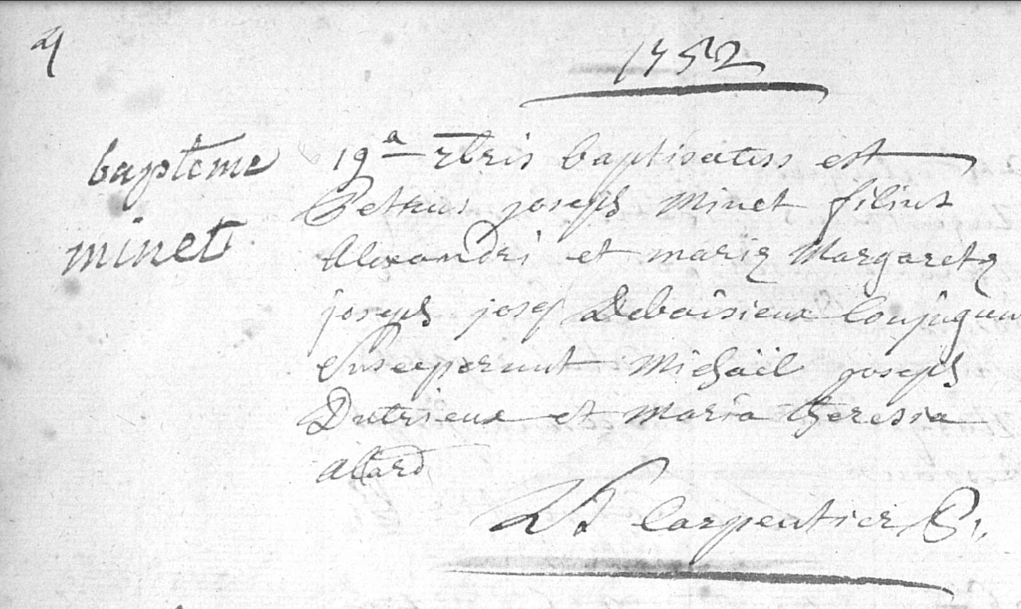 4
1752
bapteme
minet
19a 7bris baptisatus est
Petrus joseph Minet filius
Alexandri et mariæ Margaretæ
joseph josep Deboisieux Conjugum
Susceperunt Michäel joseph
Dutrieux et Maria theresia
alard
Carpentier P.